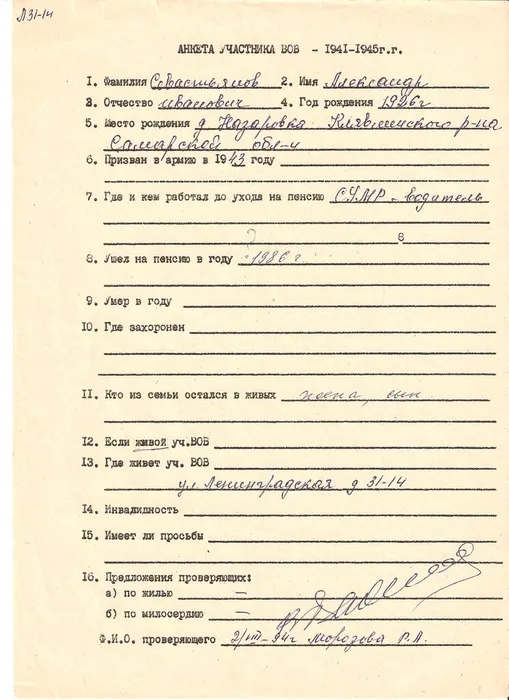 Л 31-14
АНКЕТА УЧАСТНИКА ВОВ - 1941-1945г.г.
1. Фамилия Севастьянов 2. Имя Александр
3. Отчество Иванович 4. Год рождения 1926г
5. Место рождения д Назаровка Клявлинского р-на
Самарской обл-и
6. Призван в армию в 1943 году
7. Где и кем работал до ухода на пенсию СУМР - водитель
8
8. Ушел на пенсию в году 1986 г
9. Умер в году
10. Где захоронен
11. Кто из семьи остался в живых жена, сын
12. Если живой уч.ВОВ
13. Где живет уч. ВОВ
ул. Ленинградская д 31-14
14. Инвалидность
15. Имеет ли просьбы
16. Предложения проверяющих:
а) по жилью —
б) по милосердию —
Ф.И.О. проверяющего 2/VIII-94г Морозова Р.А.